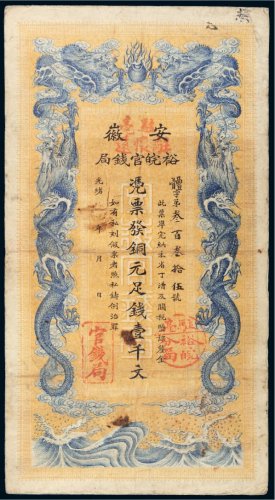 安徽
裕皖官錢局
體字第叁百叁拾伍號
此票準完納本省丁漕及關稅鹽課釐金
憑票發銅元足錢壹千文
如有私刻假票者照私鑄例治罪
光緒 年 月 日
官錢局